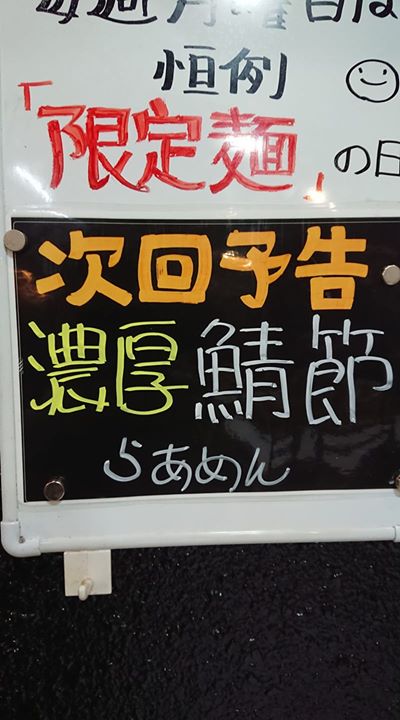 毎週月曜日は
恒例
「限定麺」の日
次回予告
濃厚鯖節
らあめん